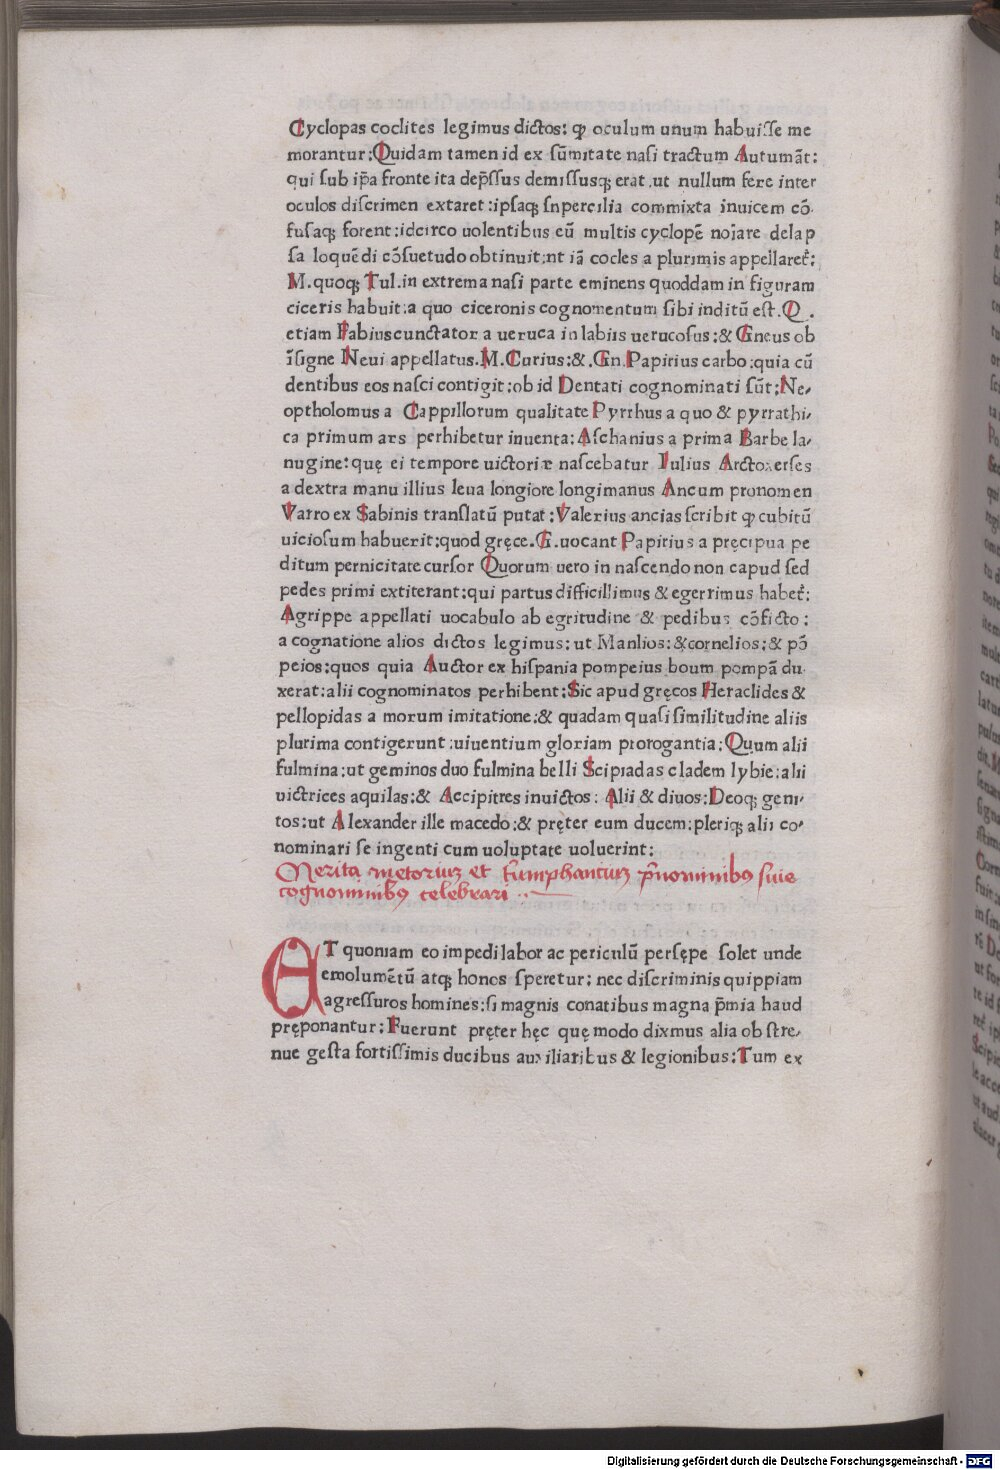 Cyclopas coclites legimus dictos: ꝙ oculum unum habuiſſe me
morantur: Quidam tamen id ex ſūmitate naſi tractum Autumāt:
qui ſub ip̄a fronte ita dep̄ſſus demiſſusqꝫ erat .ut nullum fere inter
oculos diſcrimen extaret :ipſaqꝫ ſnpercilia commixta inuicem cō.
fuſaqꝫ forent :idcirco uolentibus eū multis cyclopē noīare delap
ſa loquēdi cōſuetudo obtinuit:nt iā cocles a plurimis appellaret᷑:
M. quoqꝫ Tul .in extrema naſi parte eminens quoddam in figuram
ciceris habuit:a quo ciceronis cognomentum ſibi inditū eſt .Q .
etiam Fabius cunctator a ueruca in labiis uerucoſus :& Gneus ob
īſigne Neui appellatus. M. Curius:& .Gn. Papirius carbo :quia cū
dentibus eos naſci contigit :ob id Dentati cognominati ſūt; Ne,
optholomus a Cappillorum qualitate Pyrrhus a quo & pyrrathi,
ca primum ars perhibetur inuenta: Aſchanius a prima Barbe la,
nugine: quę ei tempore uictorie naſcebatur Iulius Arctoxerſes
a dextra manu illius leua longiore longimanus Ancum pronomen
Varro ex Sabinis tranſlatū putat : Valerius ancias ſcribit ꝙ cubitū
uicioſum habuerit :quod gręce. G. uocant Papirius a pręcipua pe
ditum pernicitate curſor Quorum uero in naſcendo non capud ſed
pedes primi extiterant: qui partus difficillimus & egerrimus habet᷑:
Agrippe appellati uocabulo ab egritudine & pedibus cōficto :
a cognatione alios dictos legimus: ut Manlios: &cornelios:& pō
peios: quos quia Auctor ex hiſpania pompeius boum pompā du.
xerat :alii cognominatos perhibent : Sic apud gręcos Heraclides &
pellopidas a morum imitatione:& quadam quaſi ſimilitudine aliis
plurima contigerunt :uiuentium gloriam prorogantia: Quum alii
fulmina :ut geminos duo fulmina belli Scipiadas cladem lybie: alii
uictrices aquilas:& Accipitres inuictos : Alii & diuos: Deoqꝫ geni,
tos:ut Alexander ille macedo :& pręter eum ducem: pleriqꝫ alii co,
nominari ſe ingenti cum uoluptate uoluerint :
Merita rhetoriuꝫ et triumphantiuꝫ p̄nominibꝰ ſuis
cognominibꝰ celebrari ..
ET quoniam eo impedi labor ac periculū perſępe ſolet unde
emolumētū atqꝫ honos ſperetur: nec diſcriminis quippiam
agreſſuros homines: ſi magnis conatibus magna p̄mia haud
pręponantur; Fuerunt pręter hęc quę modo diximus alia ob ſtre,
nue geſta fortiſſimis ducibus auxiliaribus & legionibus: Tum ex
Digitalisierung gefördert durch die Deutsche Forschungsgemeinschaft - DFG